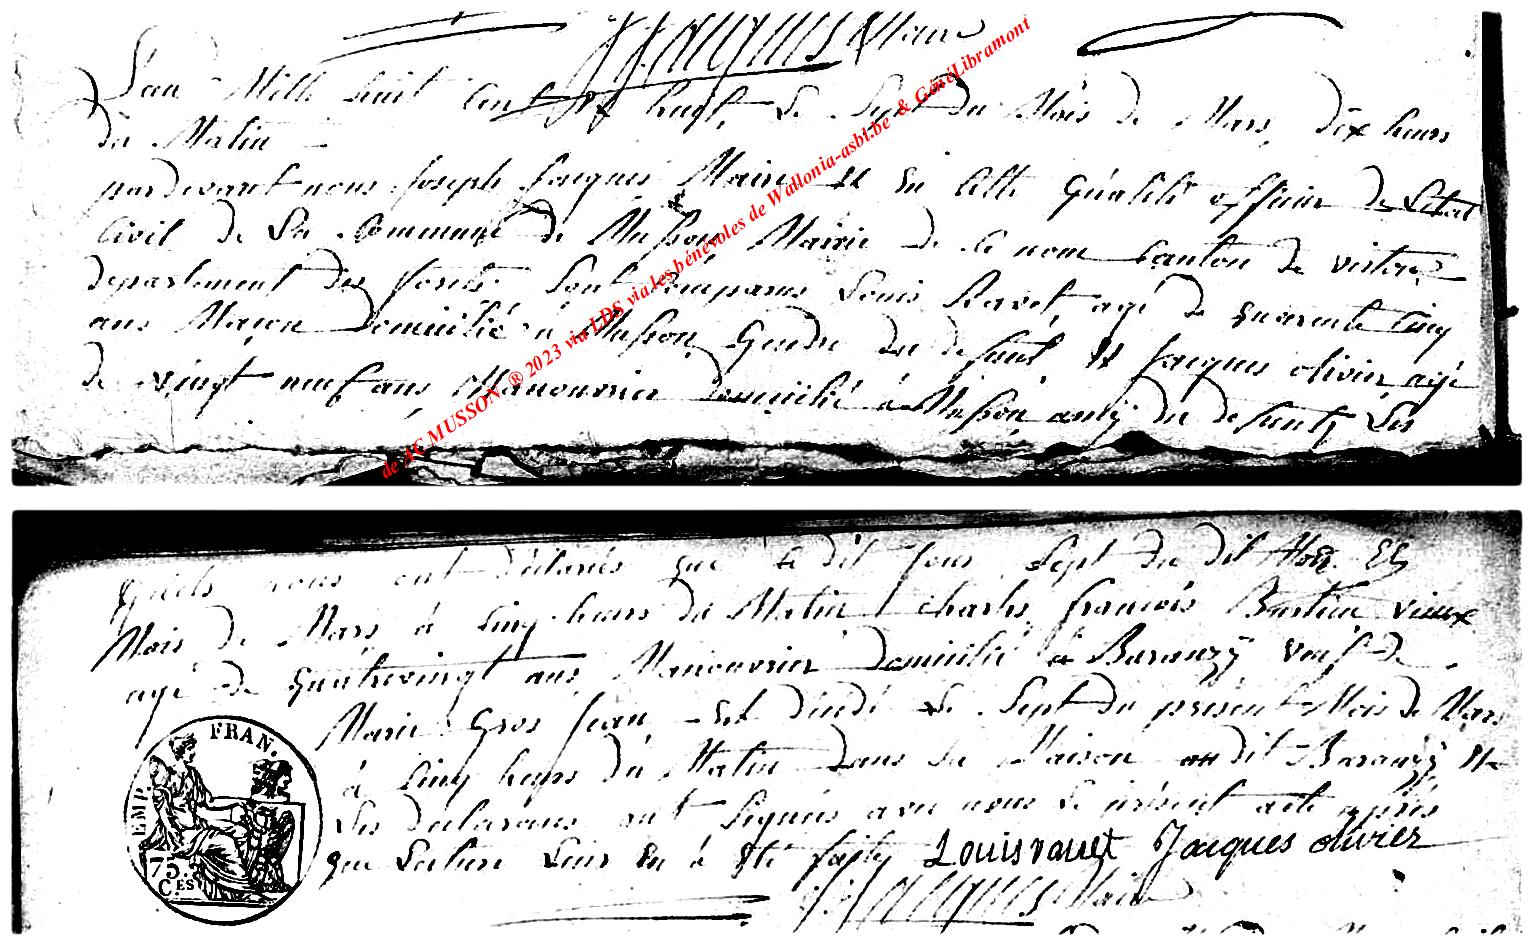 J. Jacques Maire
L'an Mille huit Cent huit, Le Sept du Mois de Mars, dix heurs
du Matin
pardevant nous joseph jacques Maire et En Cette qualité officier de Létat
Civil de La Commune de Musson Mairie de Ce nom Canton de virton
departement des forêts Sont Comparus Louis Ravet, agé de quarente Cinq
ans Maçon domicilié à Musson Gendre du defunt, et jacques olivier agé
de vingt neuf ans Manouvrier domicilié à Musson amy du defunt, Les
quels nous ont déclarés que le dit jour Sept du dit
Mois de Mars à Cinq heurs du Matin charles françois Bastien vieux
agé de quatrevingt ans Manouvrier domicilié à Baranzÿ veuf de
Marie Gros jean, Est décédé Le Sept du présent Mois de Mars
à Cinq heurs du Matin dans Sa Maison au dit Baranzÿ et
Les déclarans ont Signés avec nous Le présent acte après
que Lecture Leur En à eté faite Louis ravet Jacques olivier
J. Jacques Maire
EMP. FRAN.
75.
C.ES
de AC MUSSON ® 2023 via LDS via les bénévoles de Wallonia-asbl.be & GénéLibramont